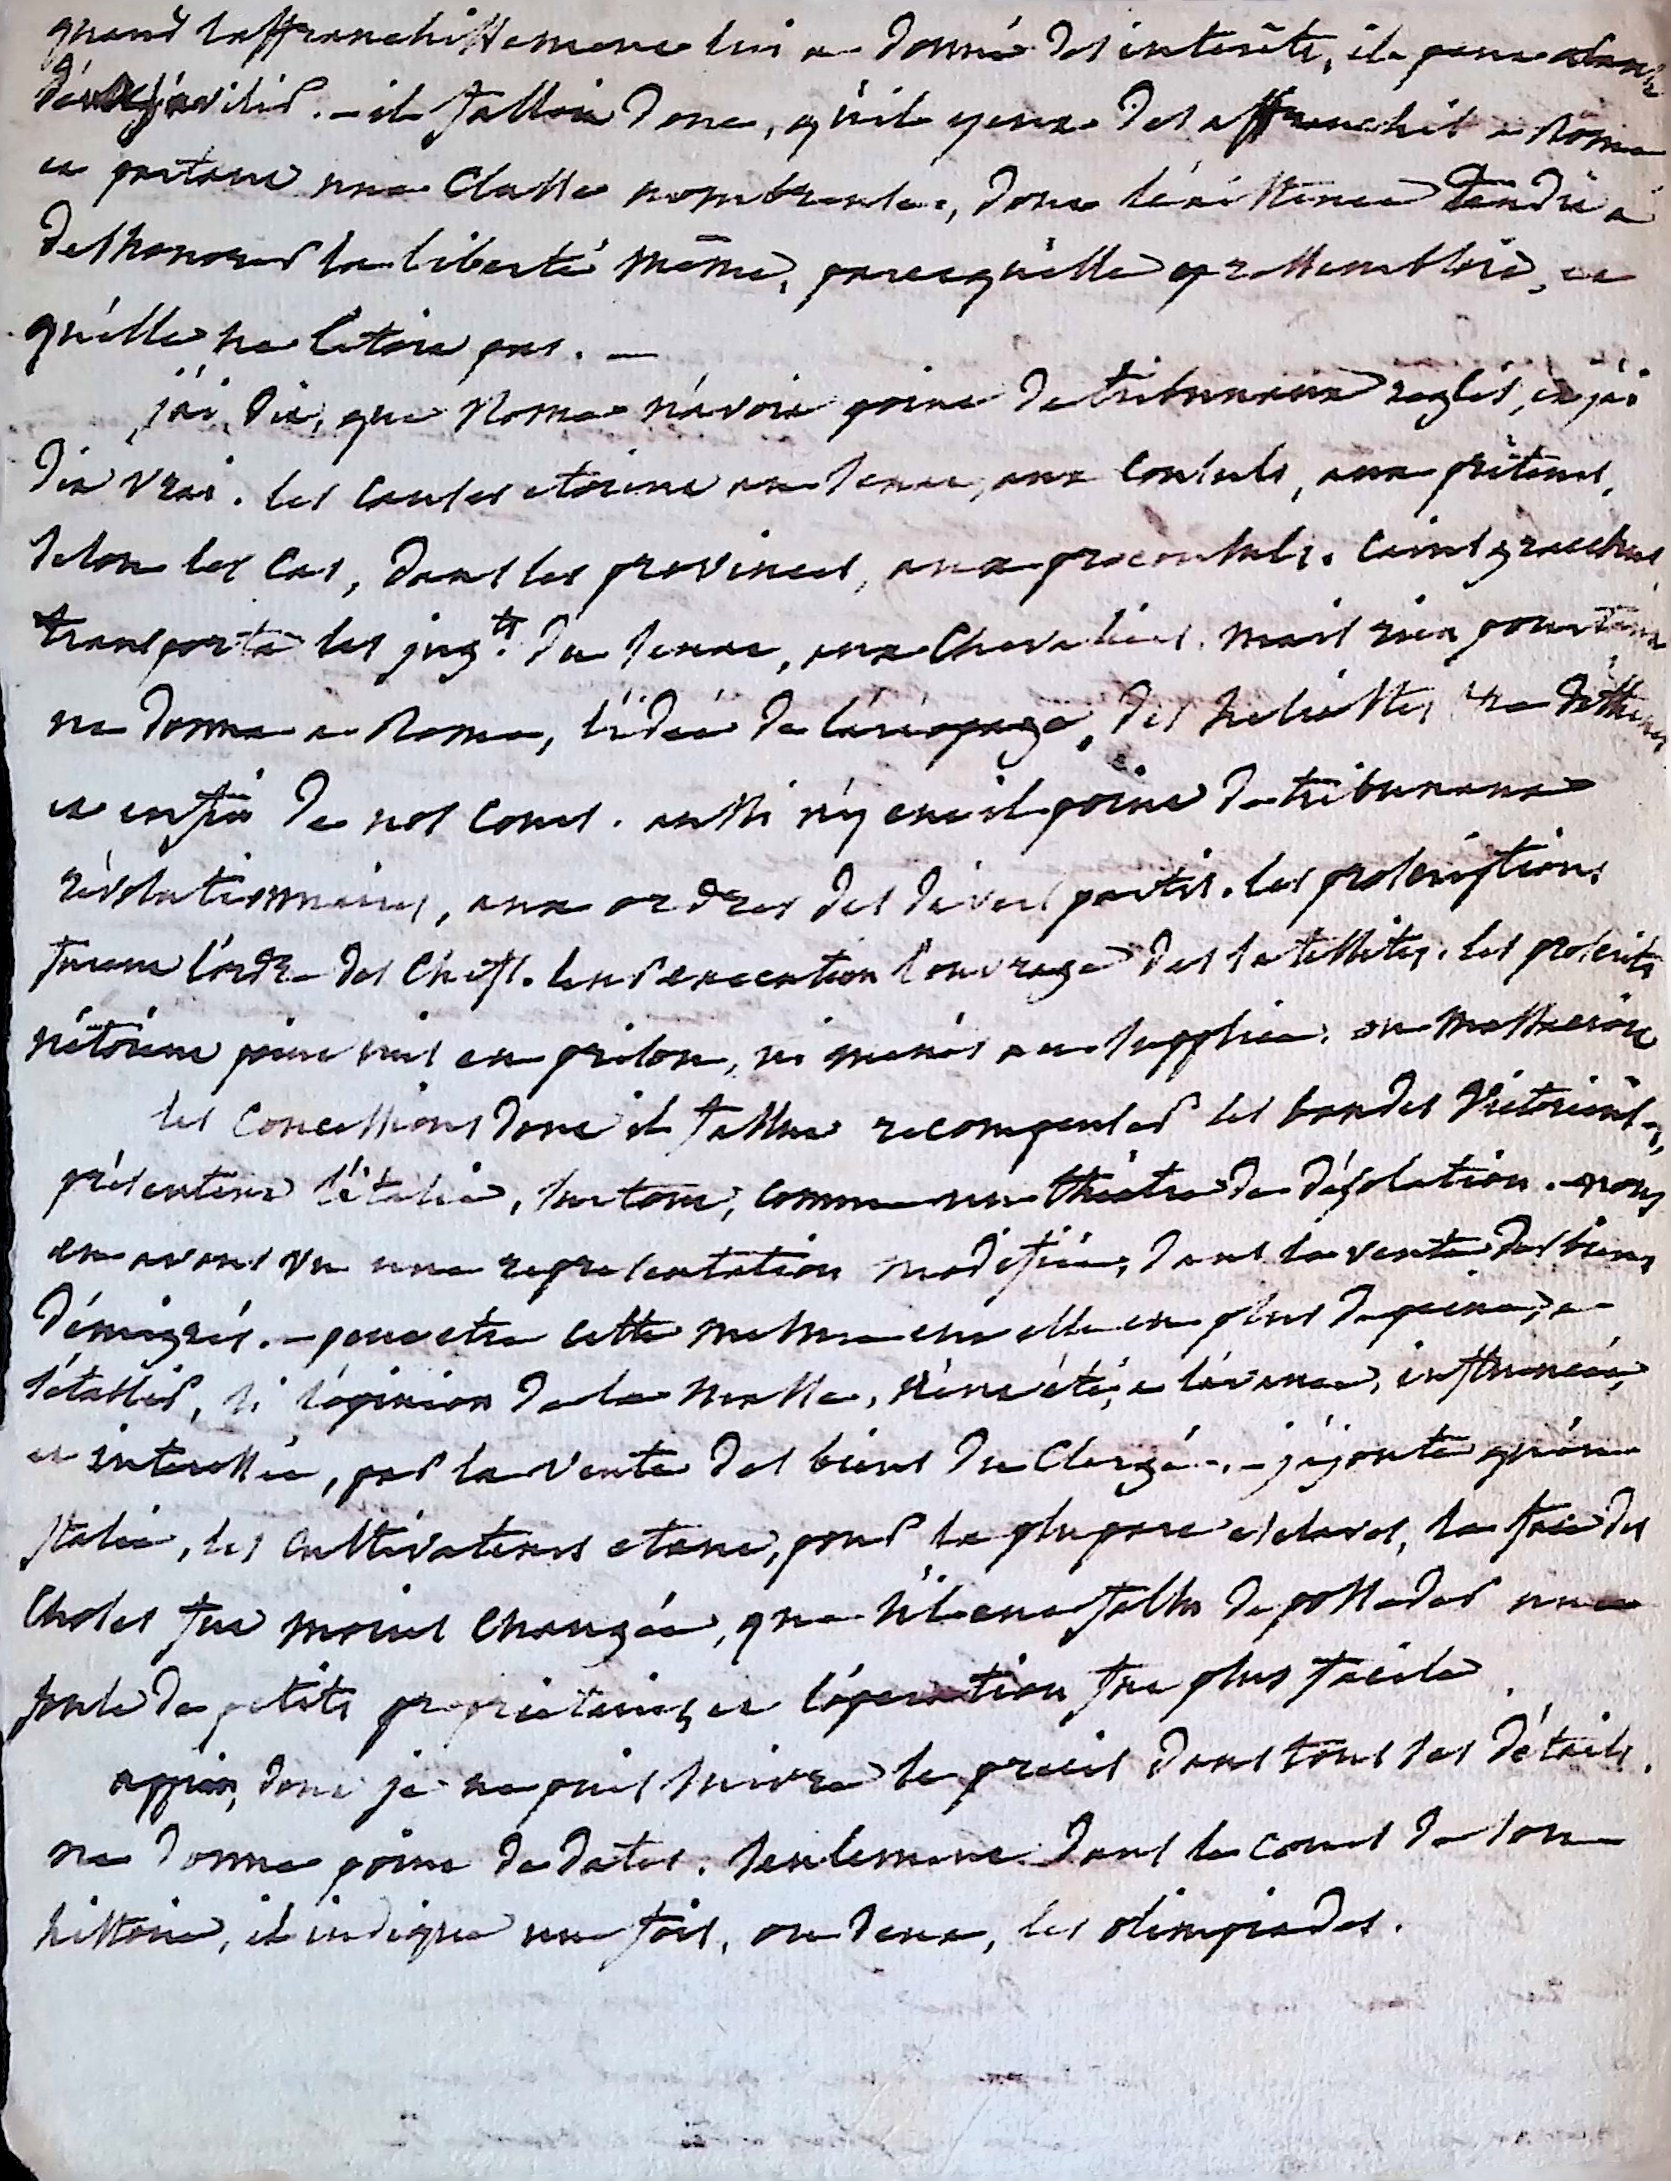 quand l'affranchissement lui a donné des interêts, il peut
s'avilir. – il falloit donc, qu'il y eut des affranchis a Rome
et partout une classe nombreuse, dont l'existence tendit a
deshonorer la liberté même, parcequ'elle y ressembloit, et
qu'elle ne l'etoit pas. –
j'ai dit, que Rome n'avoit point de tribunaux reglés, et j'ai
dit vrai. les causes etoient au senat, aux consuls, aux préteurs,
selon les cas, dans les provinces, aux proconsuls. Caius gracchus
transporta les jug.ts du senat, aux chevaliers. mais rien pourtant
ne donna a Rome, l'idée de l'aréopage, des heliastes d'athenes
et enfin de nos cours. aussi n'y eut il point de tribunaux
révolutionnaires, aux ordres des divers partis. les proscriptions
furent l'ordre des chefs. leur execution l'ouvrage des satellites. les proscrits
n'étoient point mis en prison, ni menés au supplice. on massacroit
les concessions dont il fallut recompenser les bandes victorieuses,
présentent l'italie, surtout, comme un théatre de désolation. – nous
en avons vu une representation modifiée, dans la vente des biens
d'émigrés. – peut etre cette mesure eut elle eu plus de peine, a
s'établir, si l'opinion de la masse, n'eut été, a l'avance, influencée,
et interessée, par la vente des biens du clergé. – j'ajoute qu'en
italie, les cultivateurs etant, pour la plupart esclaves, la face des
choses fut moins changée, que s'il eut fallu déposseder une
foule de petits proprietaires, et l'operation fut plus facile
appien, dont je ne puis suivre le precis dans tous ses détails.
ne donne point de dates. seulement dans le cours de son
histoire, il indique une fois, ou deux, les olimpiades.